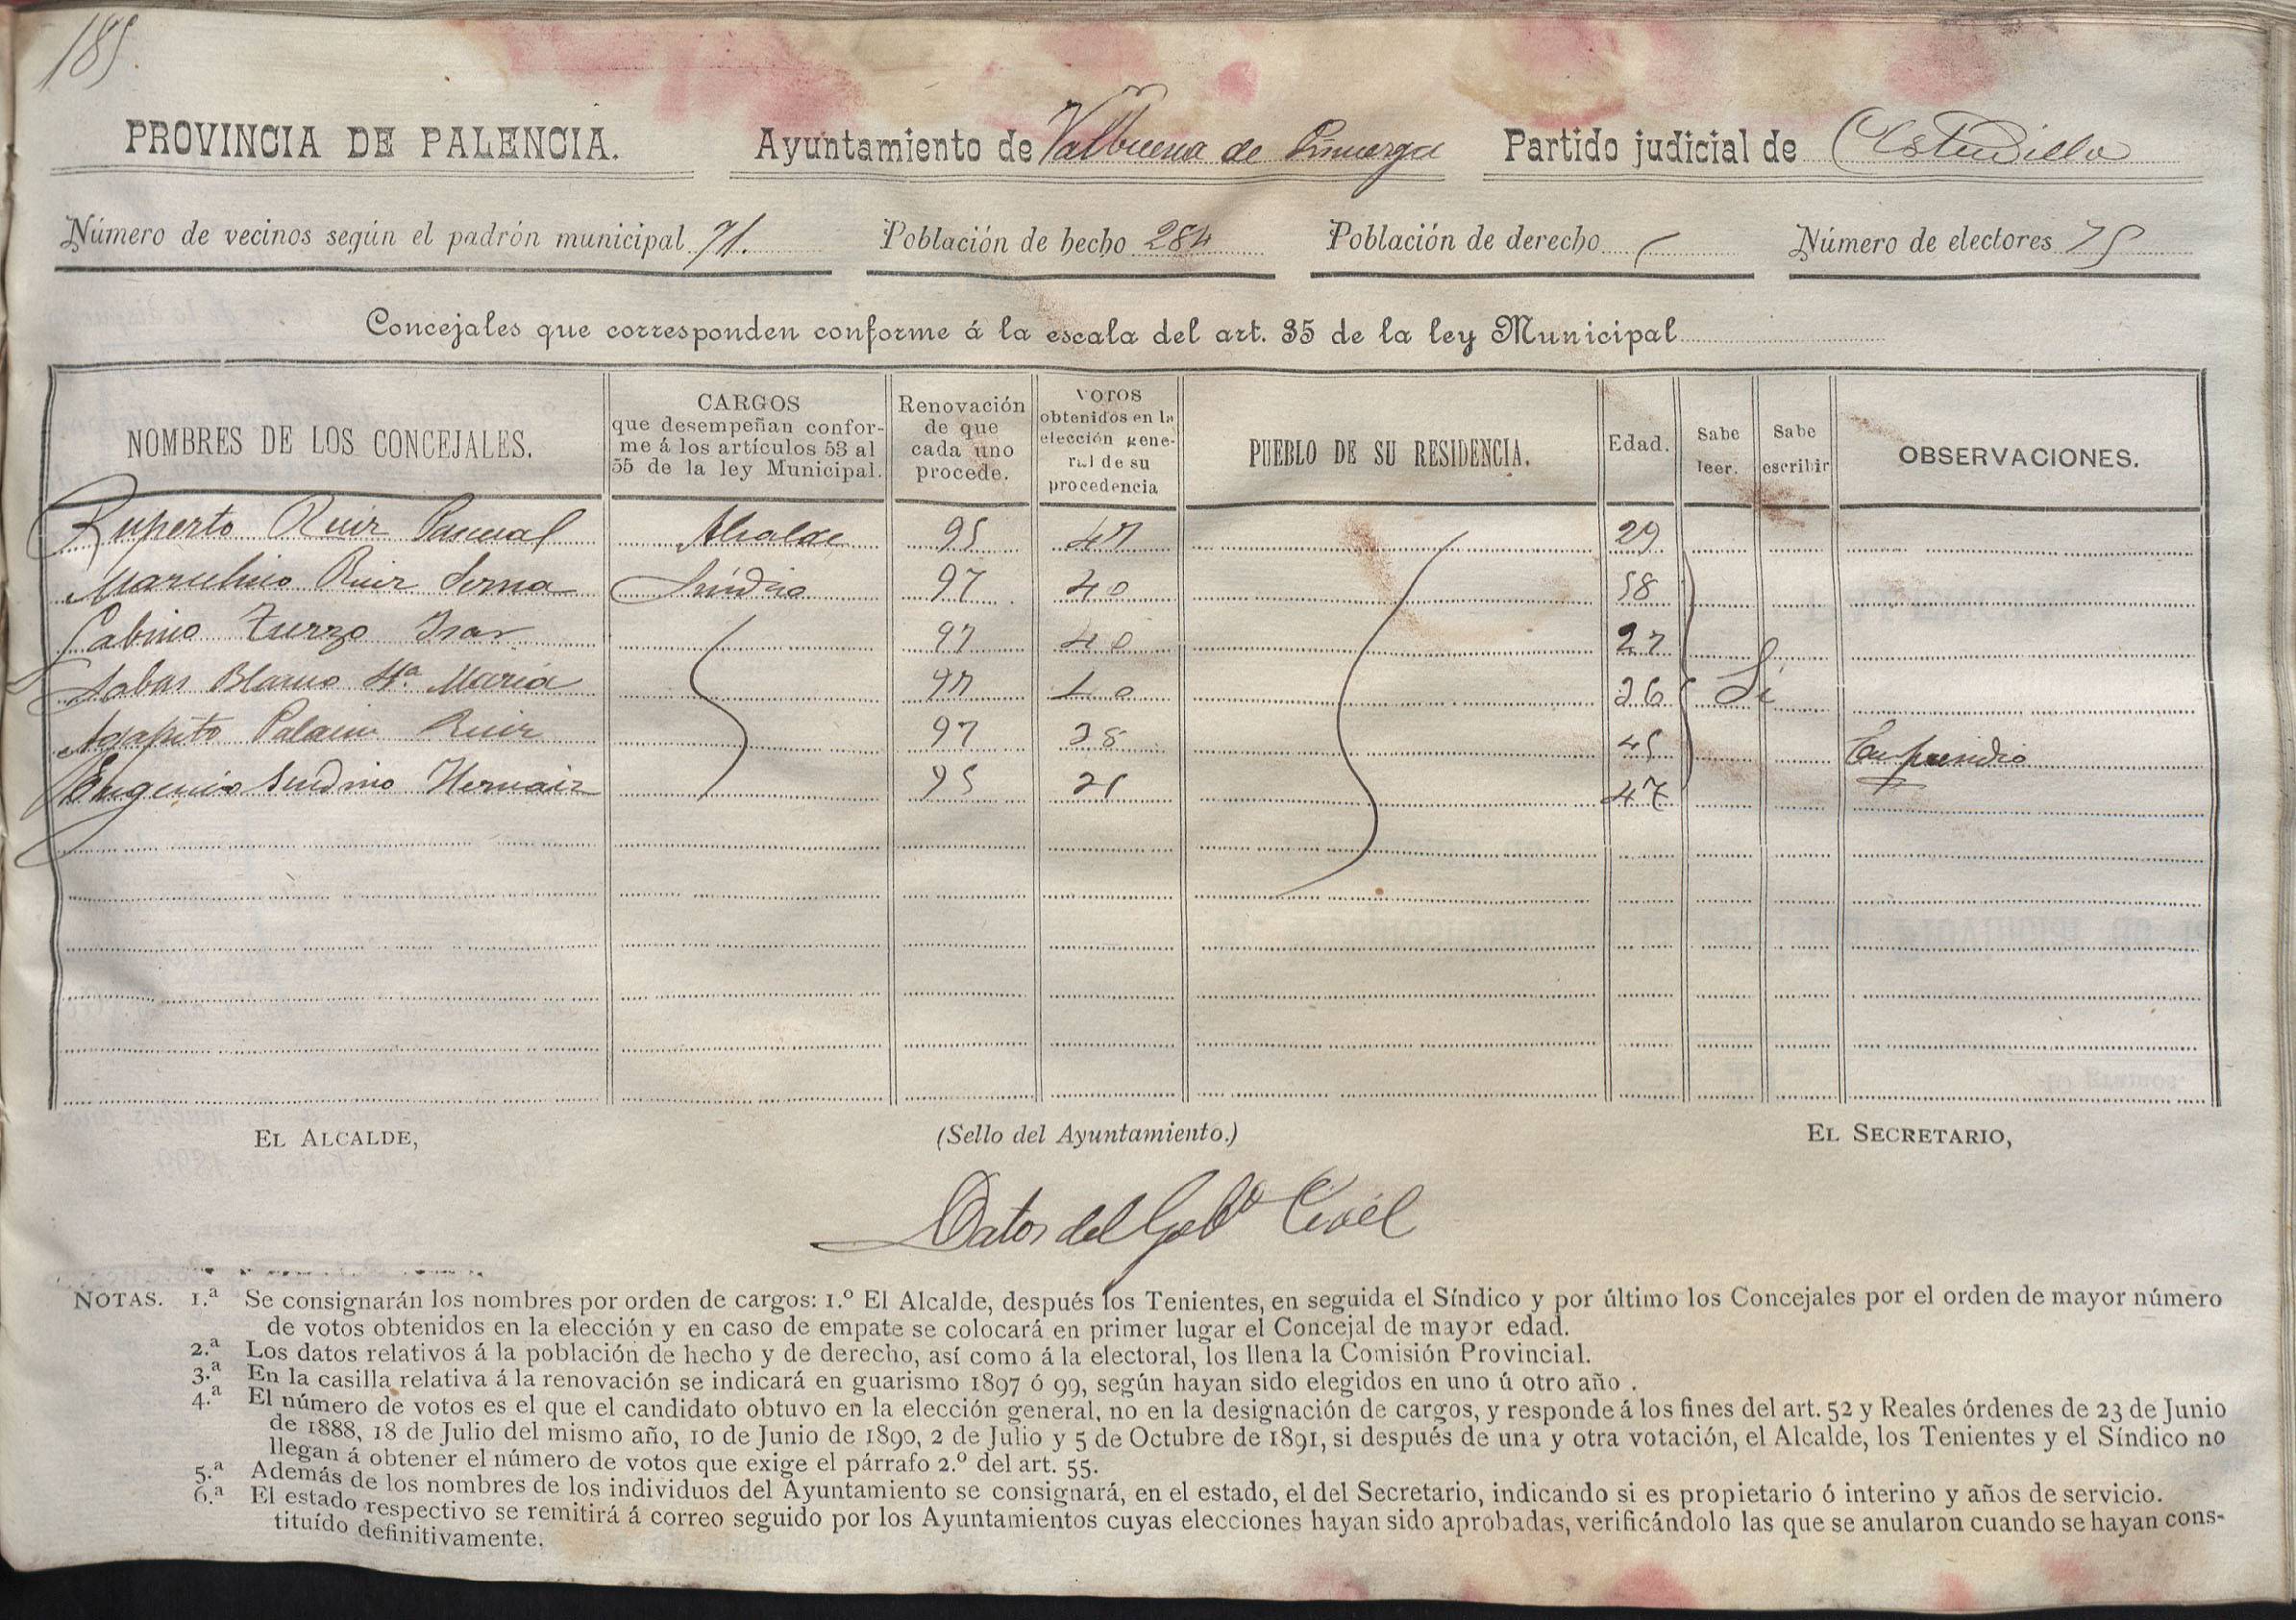 185
PROVINCIA DE PALENCIA. Ayuntamiento de Valbuena de Pisuerga Partido judicial de Astudillo
Número de vecinos según el padrón municipal 71. Población de hecho 284 Población de derecho Número de electores 75
Concejales que corresponden conforme á la escala del art. 35 de la ley Municipal
NOMBRES DE LOS CONCEJALES. CARGOS que desempeñan confor- me á los artículos 53 al 55 de la ley Municipal. Renovación de que cada uno procede. VOTOS obtenidos en la elección gene- ral de su procedencia PUEBLO DE SU RESIDENCIA. Edad. Sabe leer. Sabe escribir OBSERVACIONES.
Ruperto Ruiz Pascual Alcalde 95 47 29
Marcelino Ruiz Serna Síndico 97 40 58
Gabino Zurzo Isar 97 40 27
Sabas Blanco Sta. María 97 40 26 Si
Agapito Palacin Ruiz 97 28 45
Eugenio Hernaiz 95 21 47
EL ALCALDE, (Sello del Ayuntamiento.) EL SECRETARIO,
Datos del Gobo Civil
NOTAS. 1.ª Se consignarán los nombres por orden de cargos: 1.º El Alcalde, después los Tenientes, en seguida el Síndico y por último los Concejales por el orden de mayor número
de votos obtenidos en la elección y en caso de empate se colocará en primer lugar el Concejal de mayor edad.
2.ª Los datos relativos á la población de hecho y de derecho, así como á la electoral, los llena la Comisión Provincial.
3.ª En la casilla relativa á la renovación se indicará en guarismo 1897 ó 99, según hayan sido elegidos en uno ú otro año.
4.ª El número de votos es el que el candidato obtuvo en la elección general, no en la designación de cargos, y responde á los fines del art. 52 y Reales órdenes de 23 de Junio
de 1888, 18 de Julio del mismo año, 10 de Junio de 1890, 2 de Julio y 5 de Octubre de 1891, si después de una y otra votación, el Alcalde, los Tenientes y el Síndico no
llegan á obtener el número de votos que exige el párrafo 2.º del art. 55.
5.ª Además de los nombres de los individuos del Ayuntamiento se consignará, en el estado, el del Secretario, indicando si es propietario ó interino y años de servicio.
6.ª El estado respectivo se remitirá á correo seguido por los Ayuntamientos cuyas elecciones hayan sido aprobadas, verificándolo las que se anularon cuando se hayan cons-
tituído definitivamente.